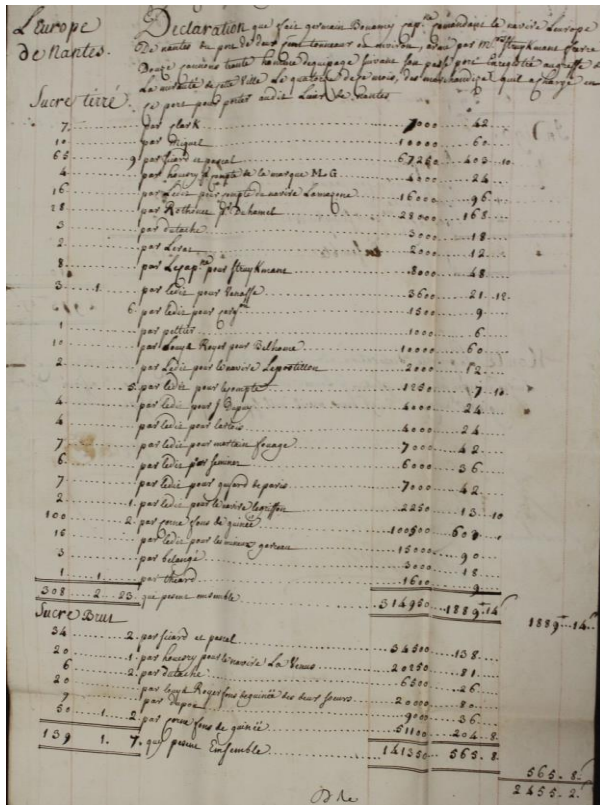 L'Europe de Nantes.
Declaration que fait germain Bonamy cap.ne comandant le navire Leurope
De nantes du port de deux cent tonneaux ou environ, armé par M.rs Struykmane frere
Douze canons trente hommes dequipage suivant son passeport enregistré au greffe de
La de cette Ville Le quatorze de ce mois, des marchandises quil a chargé en
ce port pour porter audit Lieu de nantes
Sucre terré.
7 par Clark 7000 42
10 par Miquel 10000 60
65 9 par Sicard et pascal 67250 403 10
4 par houssy compte de la marque M.G 4000 24
16 par Ledie pour compte du navire Lamazone 16000 96
28 par Duhamel 28000 168
3 par dutache 3000 18
2 par 2000 12
8 par Le cap.ne pour Struykmane 8000 48
3 1 par ledie pour 3600 21 12
6 par ledie pour 1500 9
1 par peltier 1000 6
10 par Louis Royer pour Belhomme 10000 60
2 par Ledie pour le navire Lepostillon 2000 12
5 par ledie pour 1250 7 10
4 par ledie pour J Dupuy 4000 24
4 par ledie pour 4000 24
7 par ledie pour martain focage 7000 42
6 par ledie 6000 36
7 par ledie pour de paris 7000 42
2 1 par ledie pour le navire legriffon 2250 13 10
100 2 par corne fons de guinée 100500 603
15 par ledie pour les garson 15000 90
3 par belangé 3000 18
1 1 par thiard 1600 9
308 2 23 qui pesent ensemble 314950 1889 14 1889 14
Sucre Brut
34 2 par sicard et pascal 34500 138
20 1 par houssy pour le navire La Venus 20250 81
6 2 par dutache 6500 26
20 par Louis Royer fons de guinée des deux soeurs 20000 80
9 par dupoe 9000 36
50 1 2 par corne fons de guinée 51100 204 8
139 1 7 qui pesent Ensemble 141350 565 8
565 8
2455 2